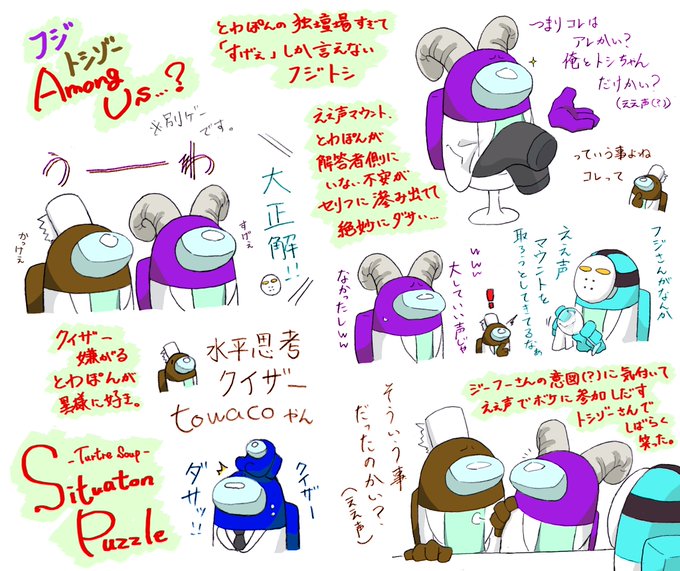 フジ
トシゾー
Among
Us…?
とわぽんの独壇場すぎて
「すげぇ」しか言えない
フジトシ
つまりコレは
アレかい?
俺とトシちゃん
だけかい?
(ええ声(?))
っていう事よね
コレって
※別ゲー
です。
うーーわ
かっけぇ
すげぇ
大正解!!
ええ声マウント、
とわぽんが
解答者側に
いない不安が
セリフに滲み出てて
絶妙にダサい…
www
大していい声じゃ
なかったしww
!
フジさんがなんか
ええ声
マウントを
取ろうとしてきてるなぁ
クイザー
嫌がる
とわぽんが
異様に好き。
水平思考
クイザー
towacoやん
-Turtre Soup-
Situaton
Puzzle
クイザー
ダサッ!!
ジーフーさんの意図(?)に気付いて
ええ声でボケに参加しだす
トシゾーさんで
しばらく
笑った。
そういう事
だったのかい?
(ええ声)